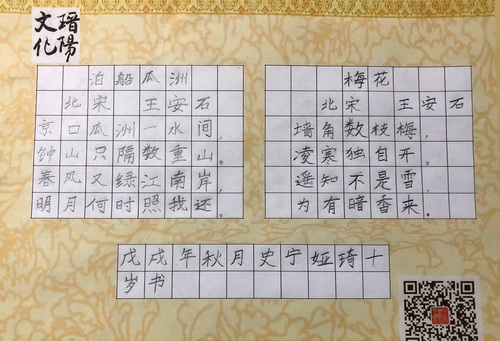 文瑨
化陽
泊船瓜洲
北宋 王安石
京口瓜洲一水间，
钟山只隔数重山。
春风又绿江南岸，
明月何时照我还。
梅花
北宋 王安石
墙角数枝梅，
凌寒独自开。
遥知不是雪，
为有暗香来。
戊戌年秋月史宁娅琦十
岁书